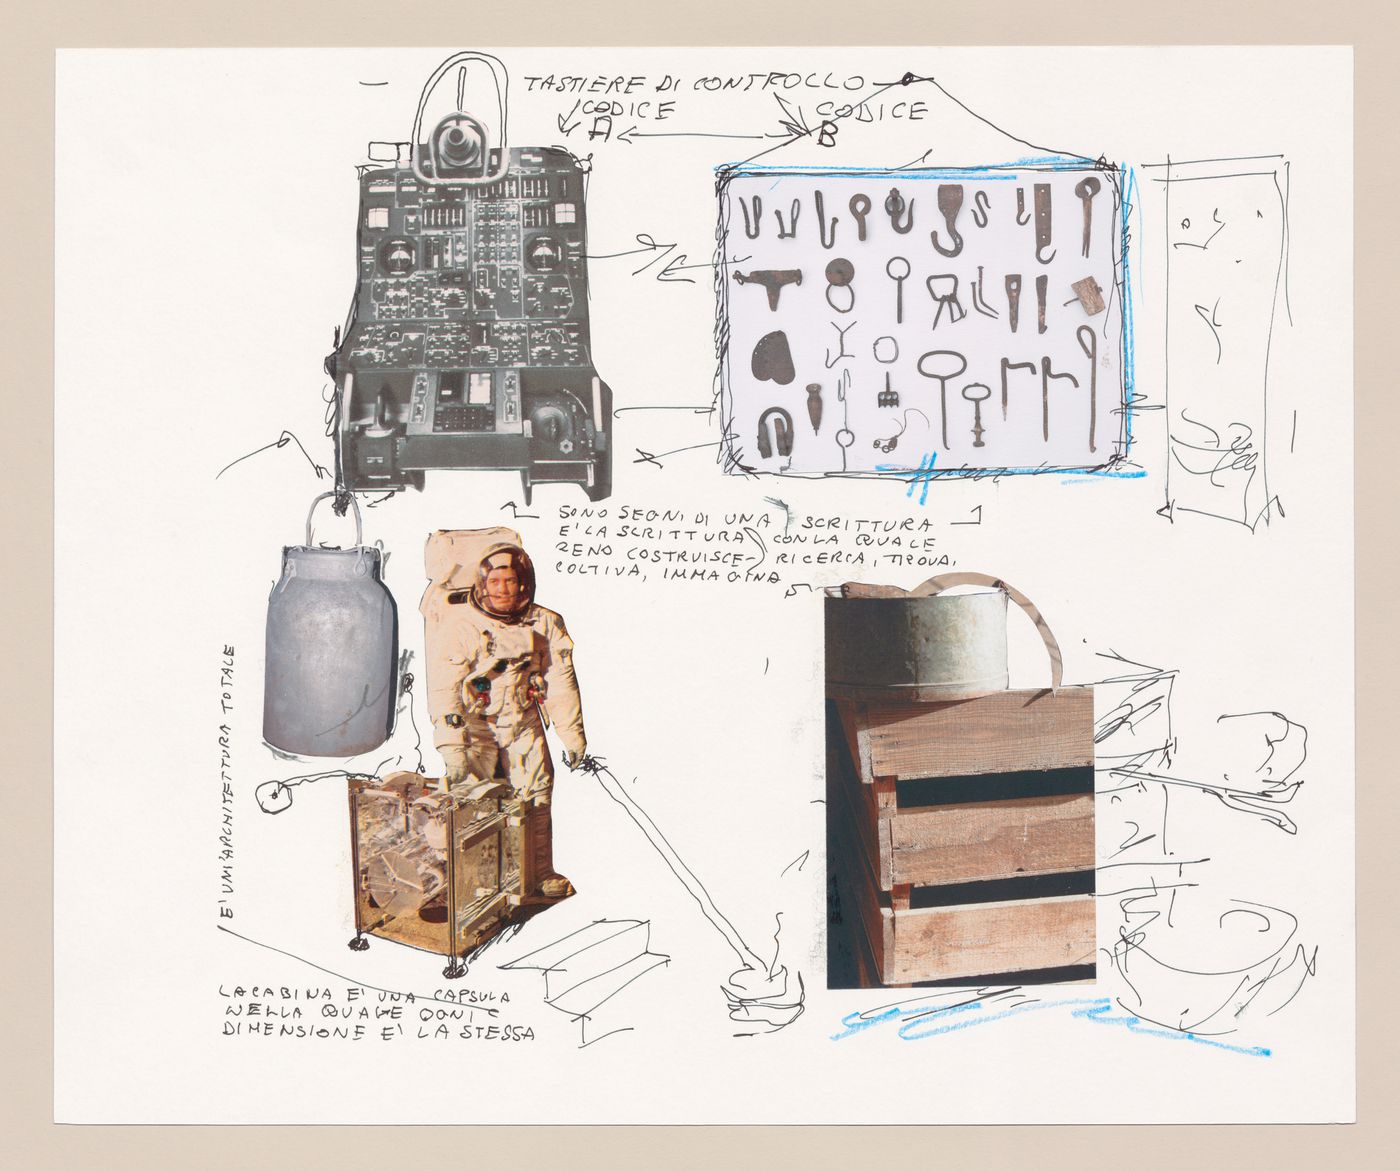 TASTIERE DI CONTROLLO
CODICE
A
CODICE
B
SONO SEGNI DI UNA SCRITTURA
E' LA SCRITTURA CON LA QUALE
ZENO COSTRUISCE, RICERCA, TROVA,
COLTIVA, IMMAGINA
E' UN'ARCHITETTURA TOTALE
LA CABINA E' UNA CAPSULA
NELLA QUALE OGNI
DIMENSIONE E' LA STESSA